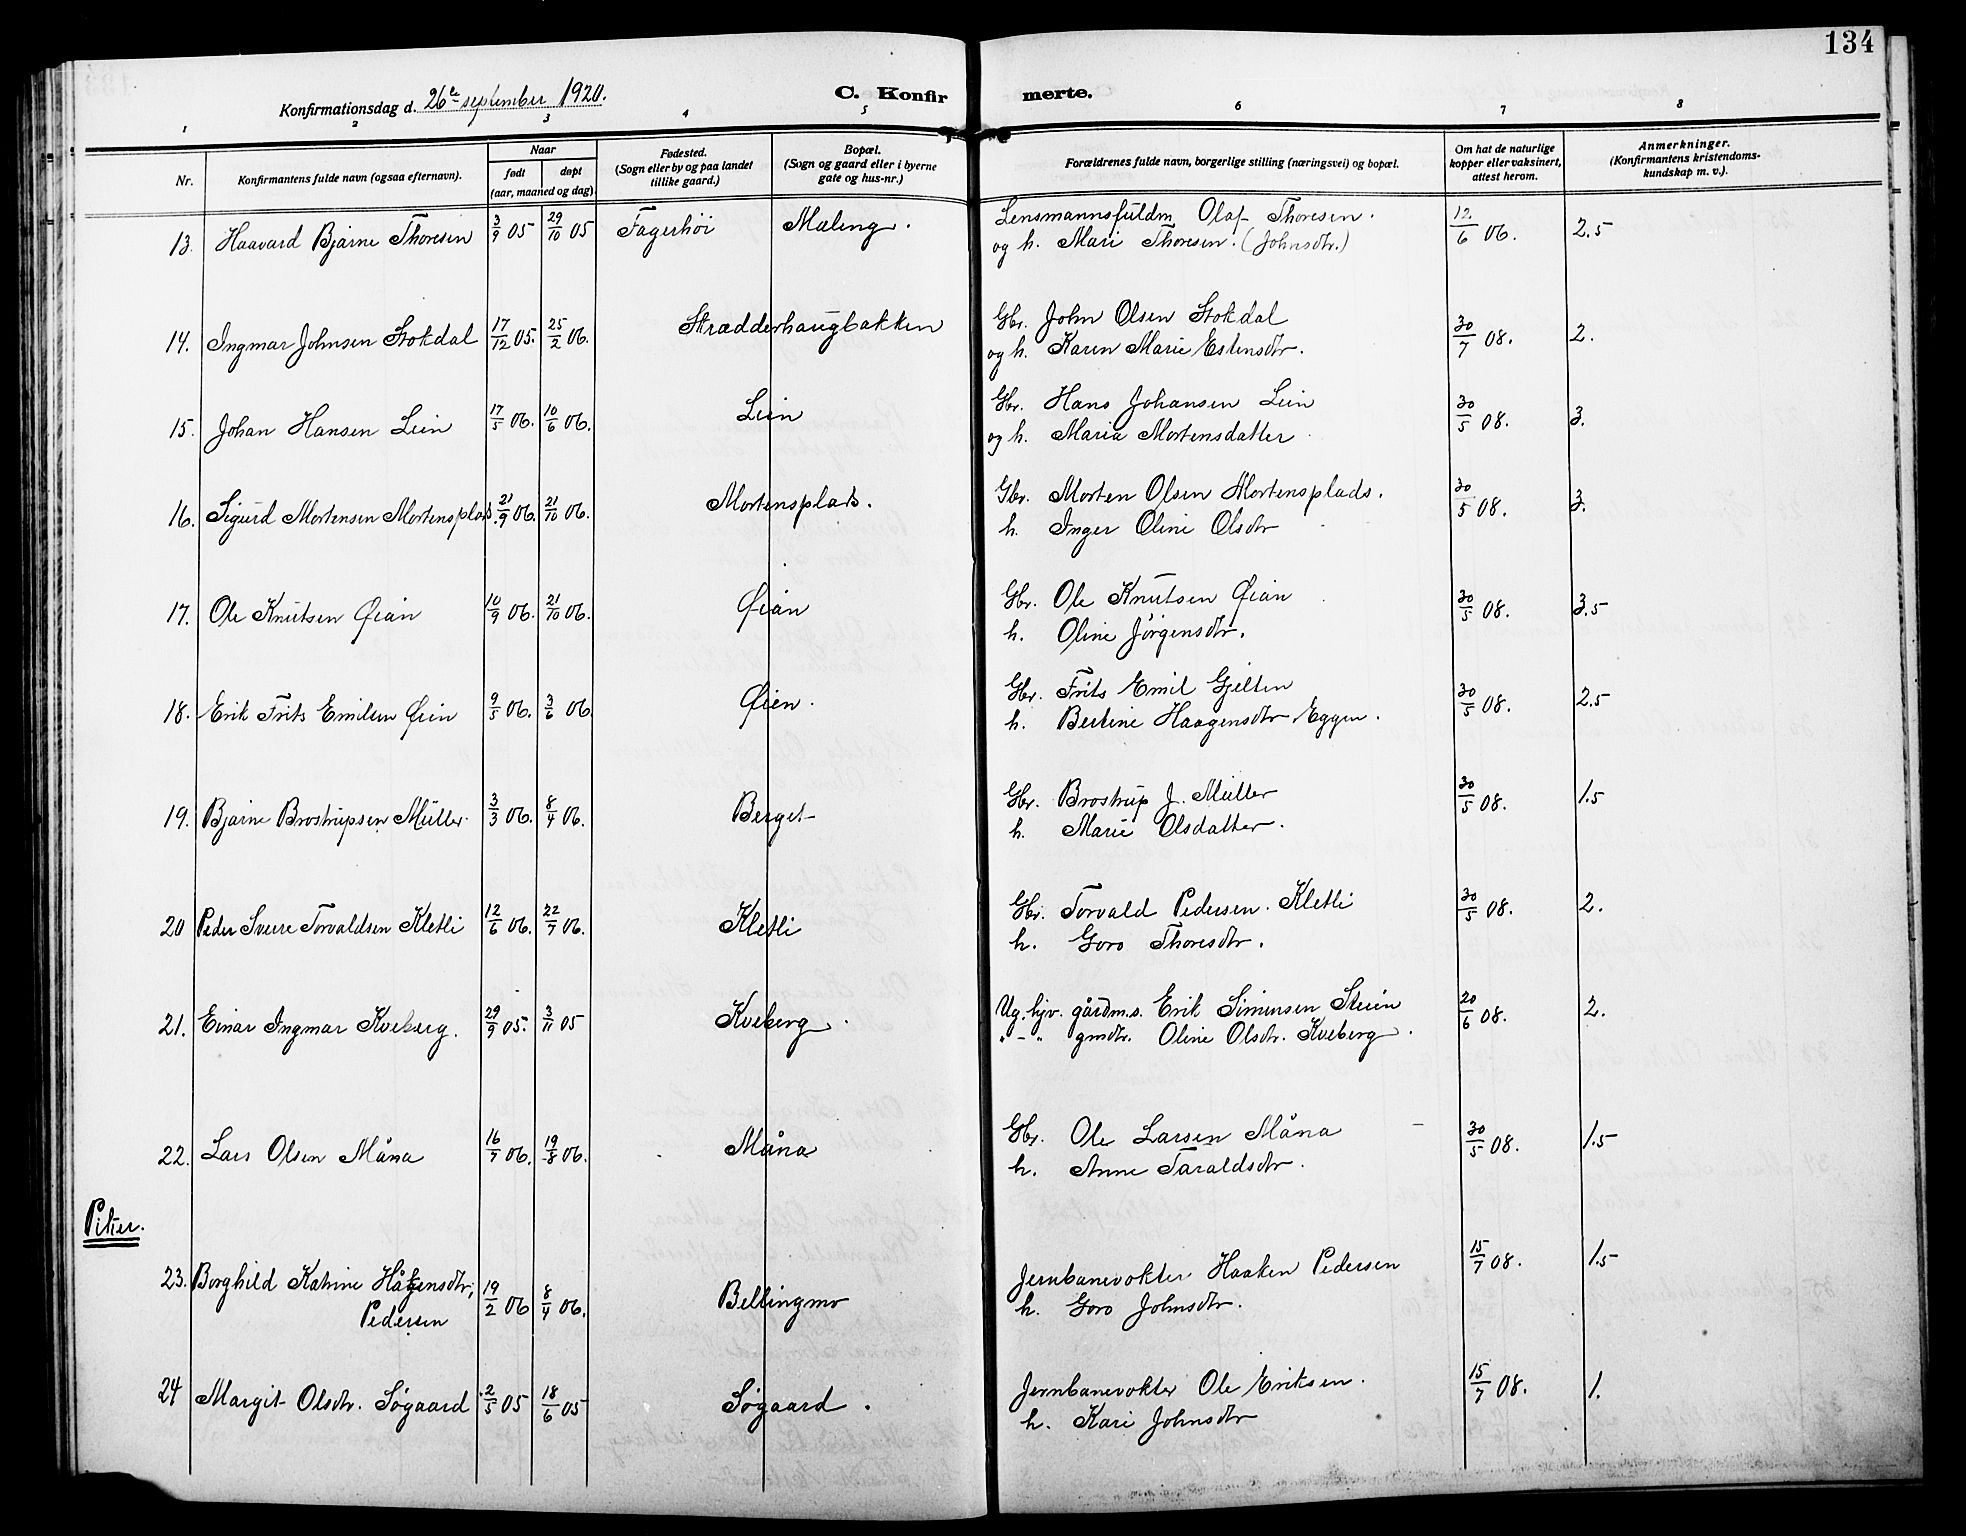 134
Konfirmationsdag d. 26de september 1920.
C. Konfirmerte.
1 2 3 4 5 6 7 8
Nr. Konfirmantens fulde navn (ogsaa efternavn). Naar født døpt (aar, maaned og dag) Fødested. (Sogn eller by og paa landet tillike gaard.) Bopæl. (Sogn og gaard eller i byerne gate og hus-nr.) Forældrenes fulde navn, borgerlige stilling (næringsvei) og bopæl. Om hat de naturlige kopper eller vaksinert, attest herom. Anmerkninger. (Konfirmantens kristendoms-kundskap m. v.).
13. Haavard Bjarne Thoresen 3/9 05 29/10 05 Fagerhöi Mæleng. Lensmannsfuldm Olaf Thoresen. 12/6 06. 2.5
og h. Mari Thoresen. (Johnsdtr.)
14. Ingmar Johnsen Stokdal 17/12 05. 25/2 06. Strædderhaugbakken Gbr. John Olsen Stokdal 30/7 08. 2.
og h. Karen Marie Estensdtr.
15. Johan Hansen Lien 17/5 06. 10/6 06. Lien Gbr. Hans Johansen Lien 30/5 08. 3.
og h. Maria Mortensdatter
16. Sigurd Mortensen Mortensplads. 21/9 06. 21/10 06. Mortensplads. Gbr. Morten Olsen Mortensplads. 30/5 08. 3.
h. Inger Oline Olsdtr
17. Ole Knutsen Øian 10/9 06. 21/10 06. Øian Gbr. Ole Knutsen Øian 30/5 08. 3.5
h. Oline Jörgensdtr.
18. Erik Frits Emilsen Øien 9/5 06. 3/6 06. Øien. Gbr. Frits Emil Gjelten 30/5 08. 2.5
h. Bertine Haagensdtr Eggen.
19. Bjarne Brostrupsen Müller. 3/3 06. 8/4 06. Berget Gbr. Brostrup J. Müller 30/5 08. 1.5
h. Marie Olsdatter.
20 Peder Sverre Torvaldsen Kletli 12/6 06. 22/7 06. Kletli Gbr. Torvald Pedersen. Kletli 30/5 08. 2.
h. Goro Thoresdtr.
21. Einar Ingmar Kveberg. 29/9 05. 3/11 05 Kveberg. Ug. hjv. gårdm.s. Erik Simensen Steien 20/6 08. 2.
" - " gmdtr. Oline Olsdtr. Kveberg.
22. Lars Olsen Måna 16/7 06. 19/8 06. Måna Gbr. Ole Larsen Måna 30/5 08. 1.5
h. Anne Taraldsdtr.
Piker.
23. Borghild Katrine Håkensdtr, 19/2 06 8/4 06. Bellingmo Jernbanevokter Haaken Pedersen 15/7 08. 1.5
Pedersen h. Goro Johnsdtr.
24 Margit Olsdtr. Søgaard 2/5 05 18/6 05 Søgaard. Jernbanevokter Ole Eriksen. 15/7 08. 1.
h. Kari Johnsdtr